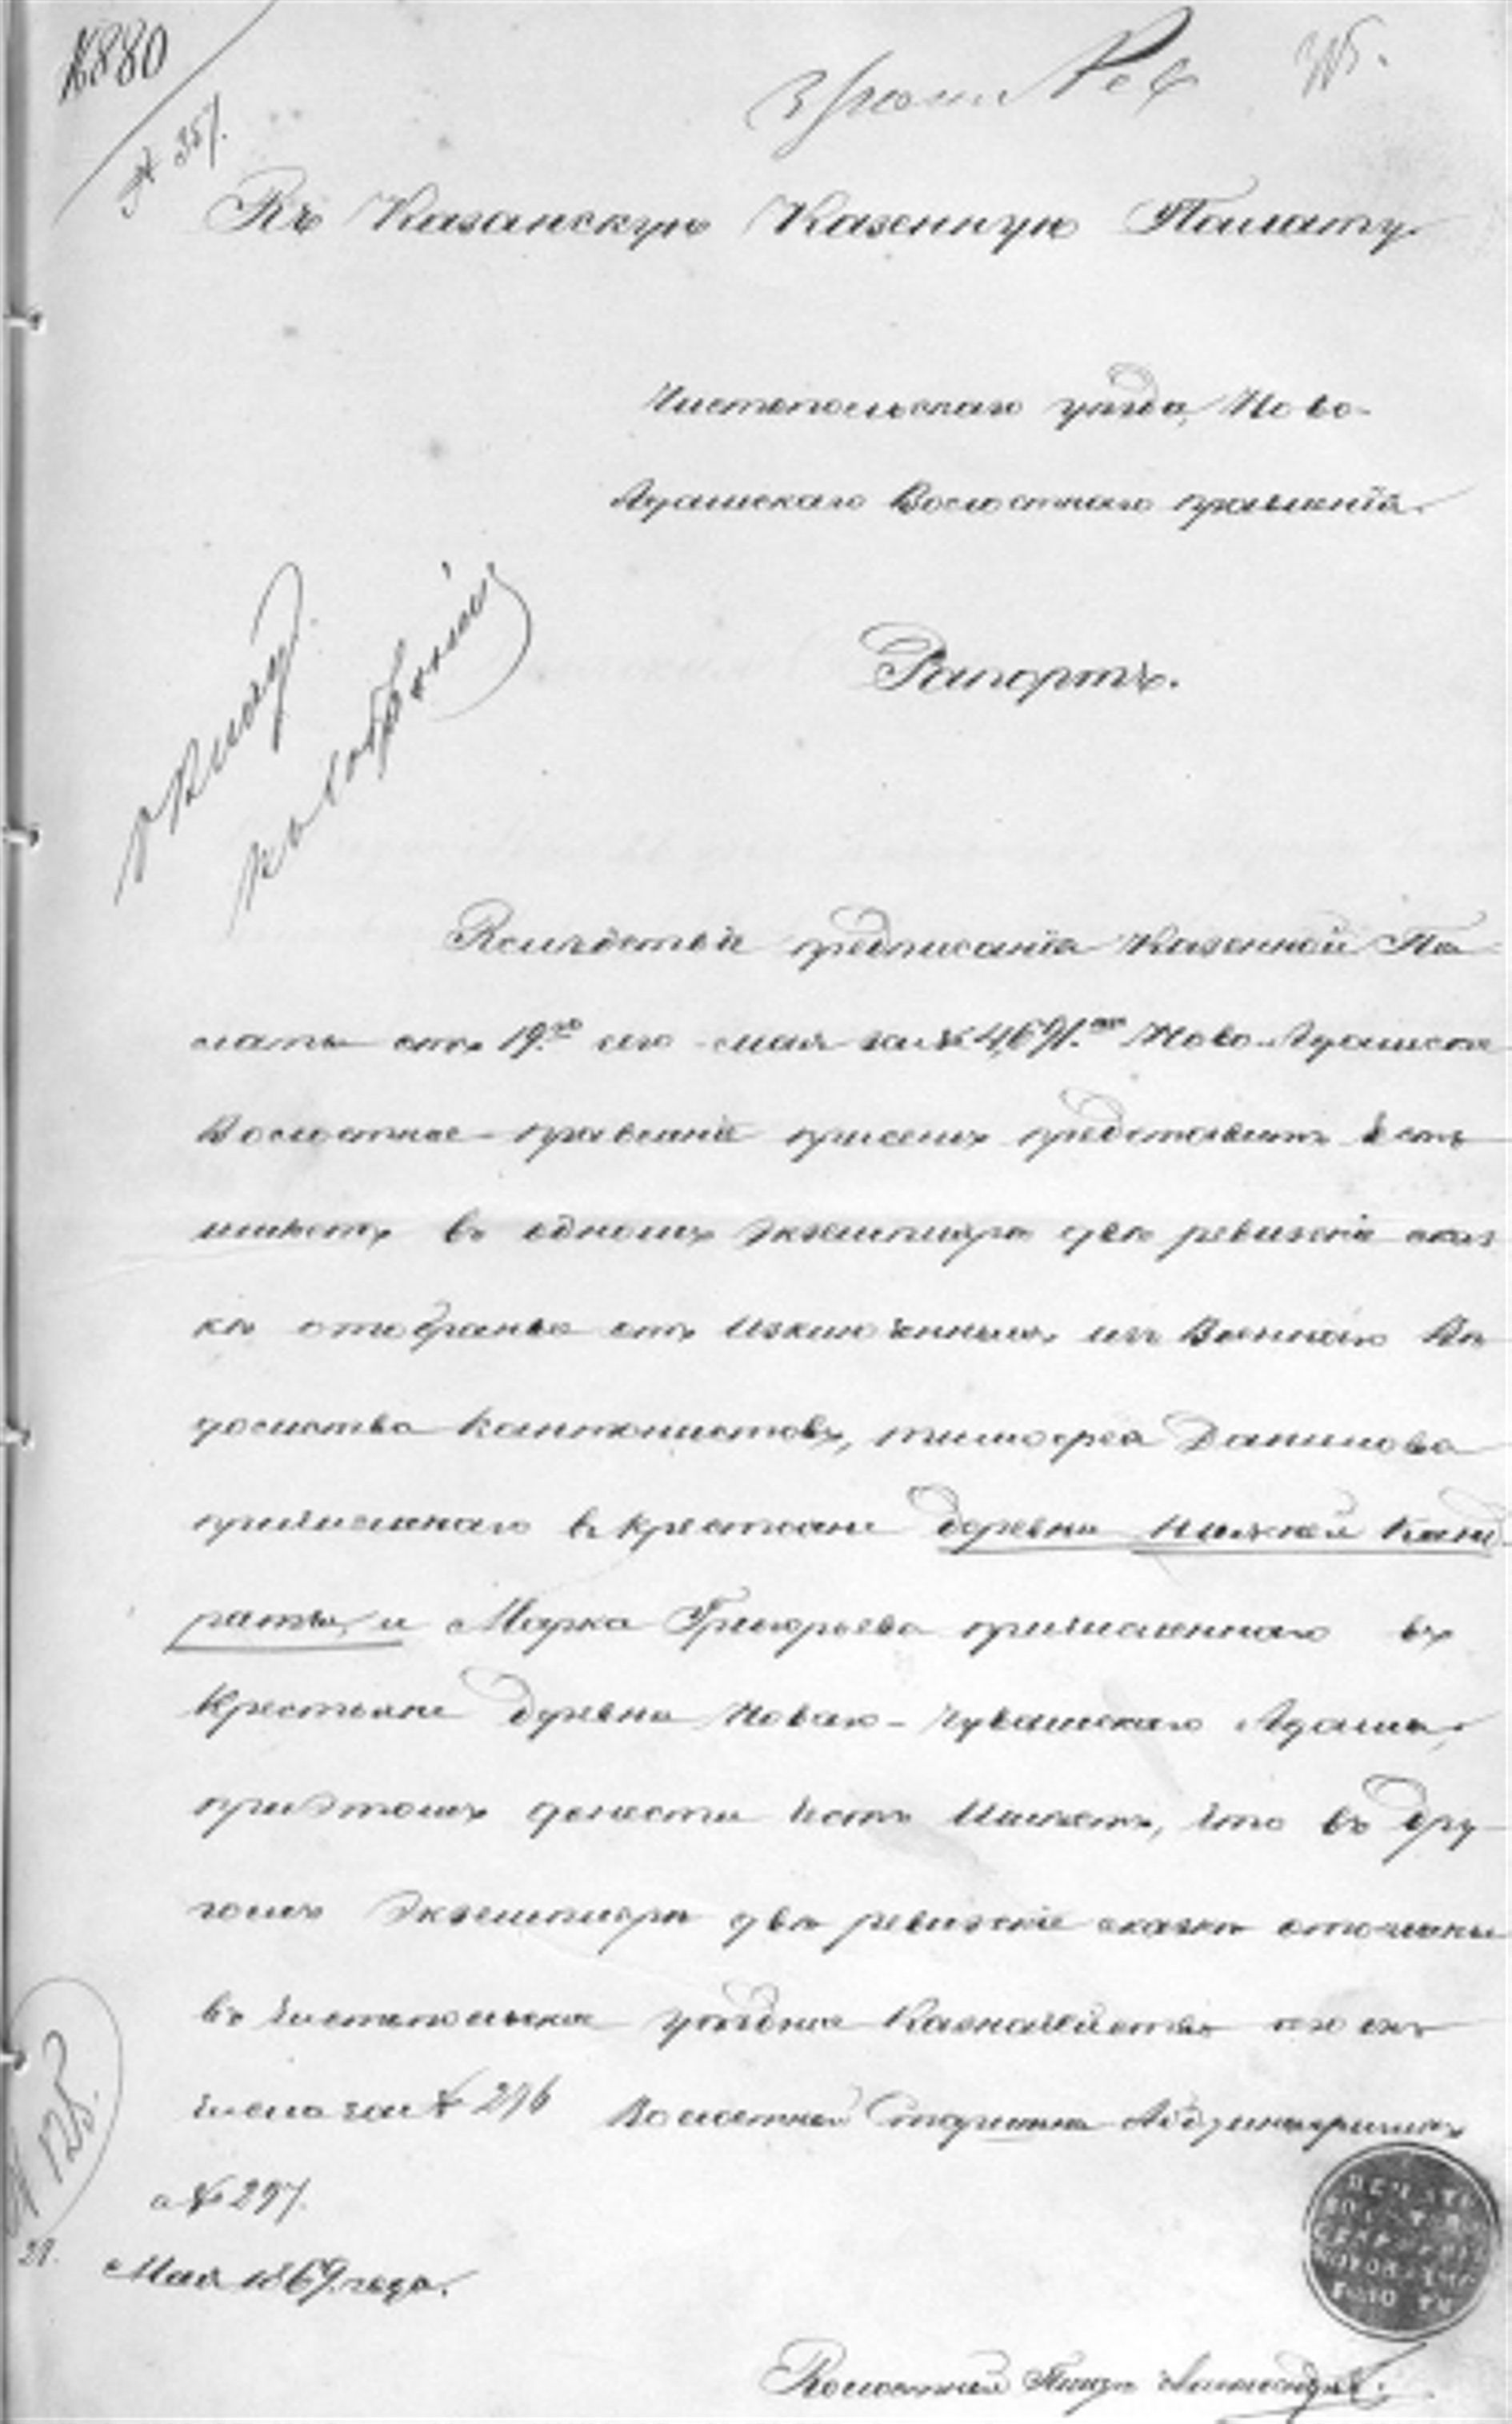 №880
№ 357.
Въ Казанскую Казенную Палату
Чистопольскаго уѣзда, Ново-
Адамскаго Волостнаго правленія.
Рапортъ.
Вслѣдствіе предписанія Казенной Па
латы отъ 19.го сего мая за № 4,691.мъ Ново-Адамское
Волостное правленіе присемъ представить честь
имѣетъ въ одномъ экземплярѣ двѣ ревизскіе сказ
ки отобраные отъ изключенныхъ изъ Военнаго Вѣ
домства кантонистовъ, тимофея Данилова
причисленаго въ крестьяне деревни Нижней Канд
раты, и Марка Григорьева причисленнаго въ
Крестьяне деревни Новаго-Чувашскаго Адама,
приэтомъ донести честь Имѣетъ, что въ дру
гомъ экземплярѣ двѣ ревизскіе сказки отосланы
въ Чистопольское уѣздное Казначейство
число за № 296 Волостной Старшина
а № 297.
21.
Мая 1869 года.
ПЕЧАТЬ
Волостной Писарь